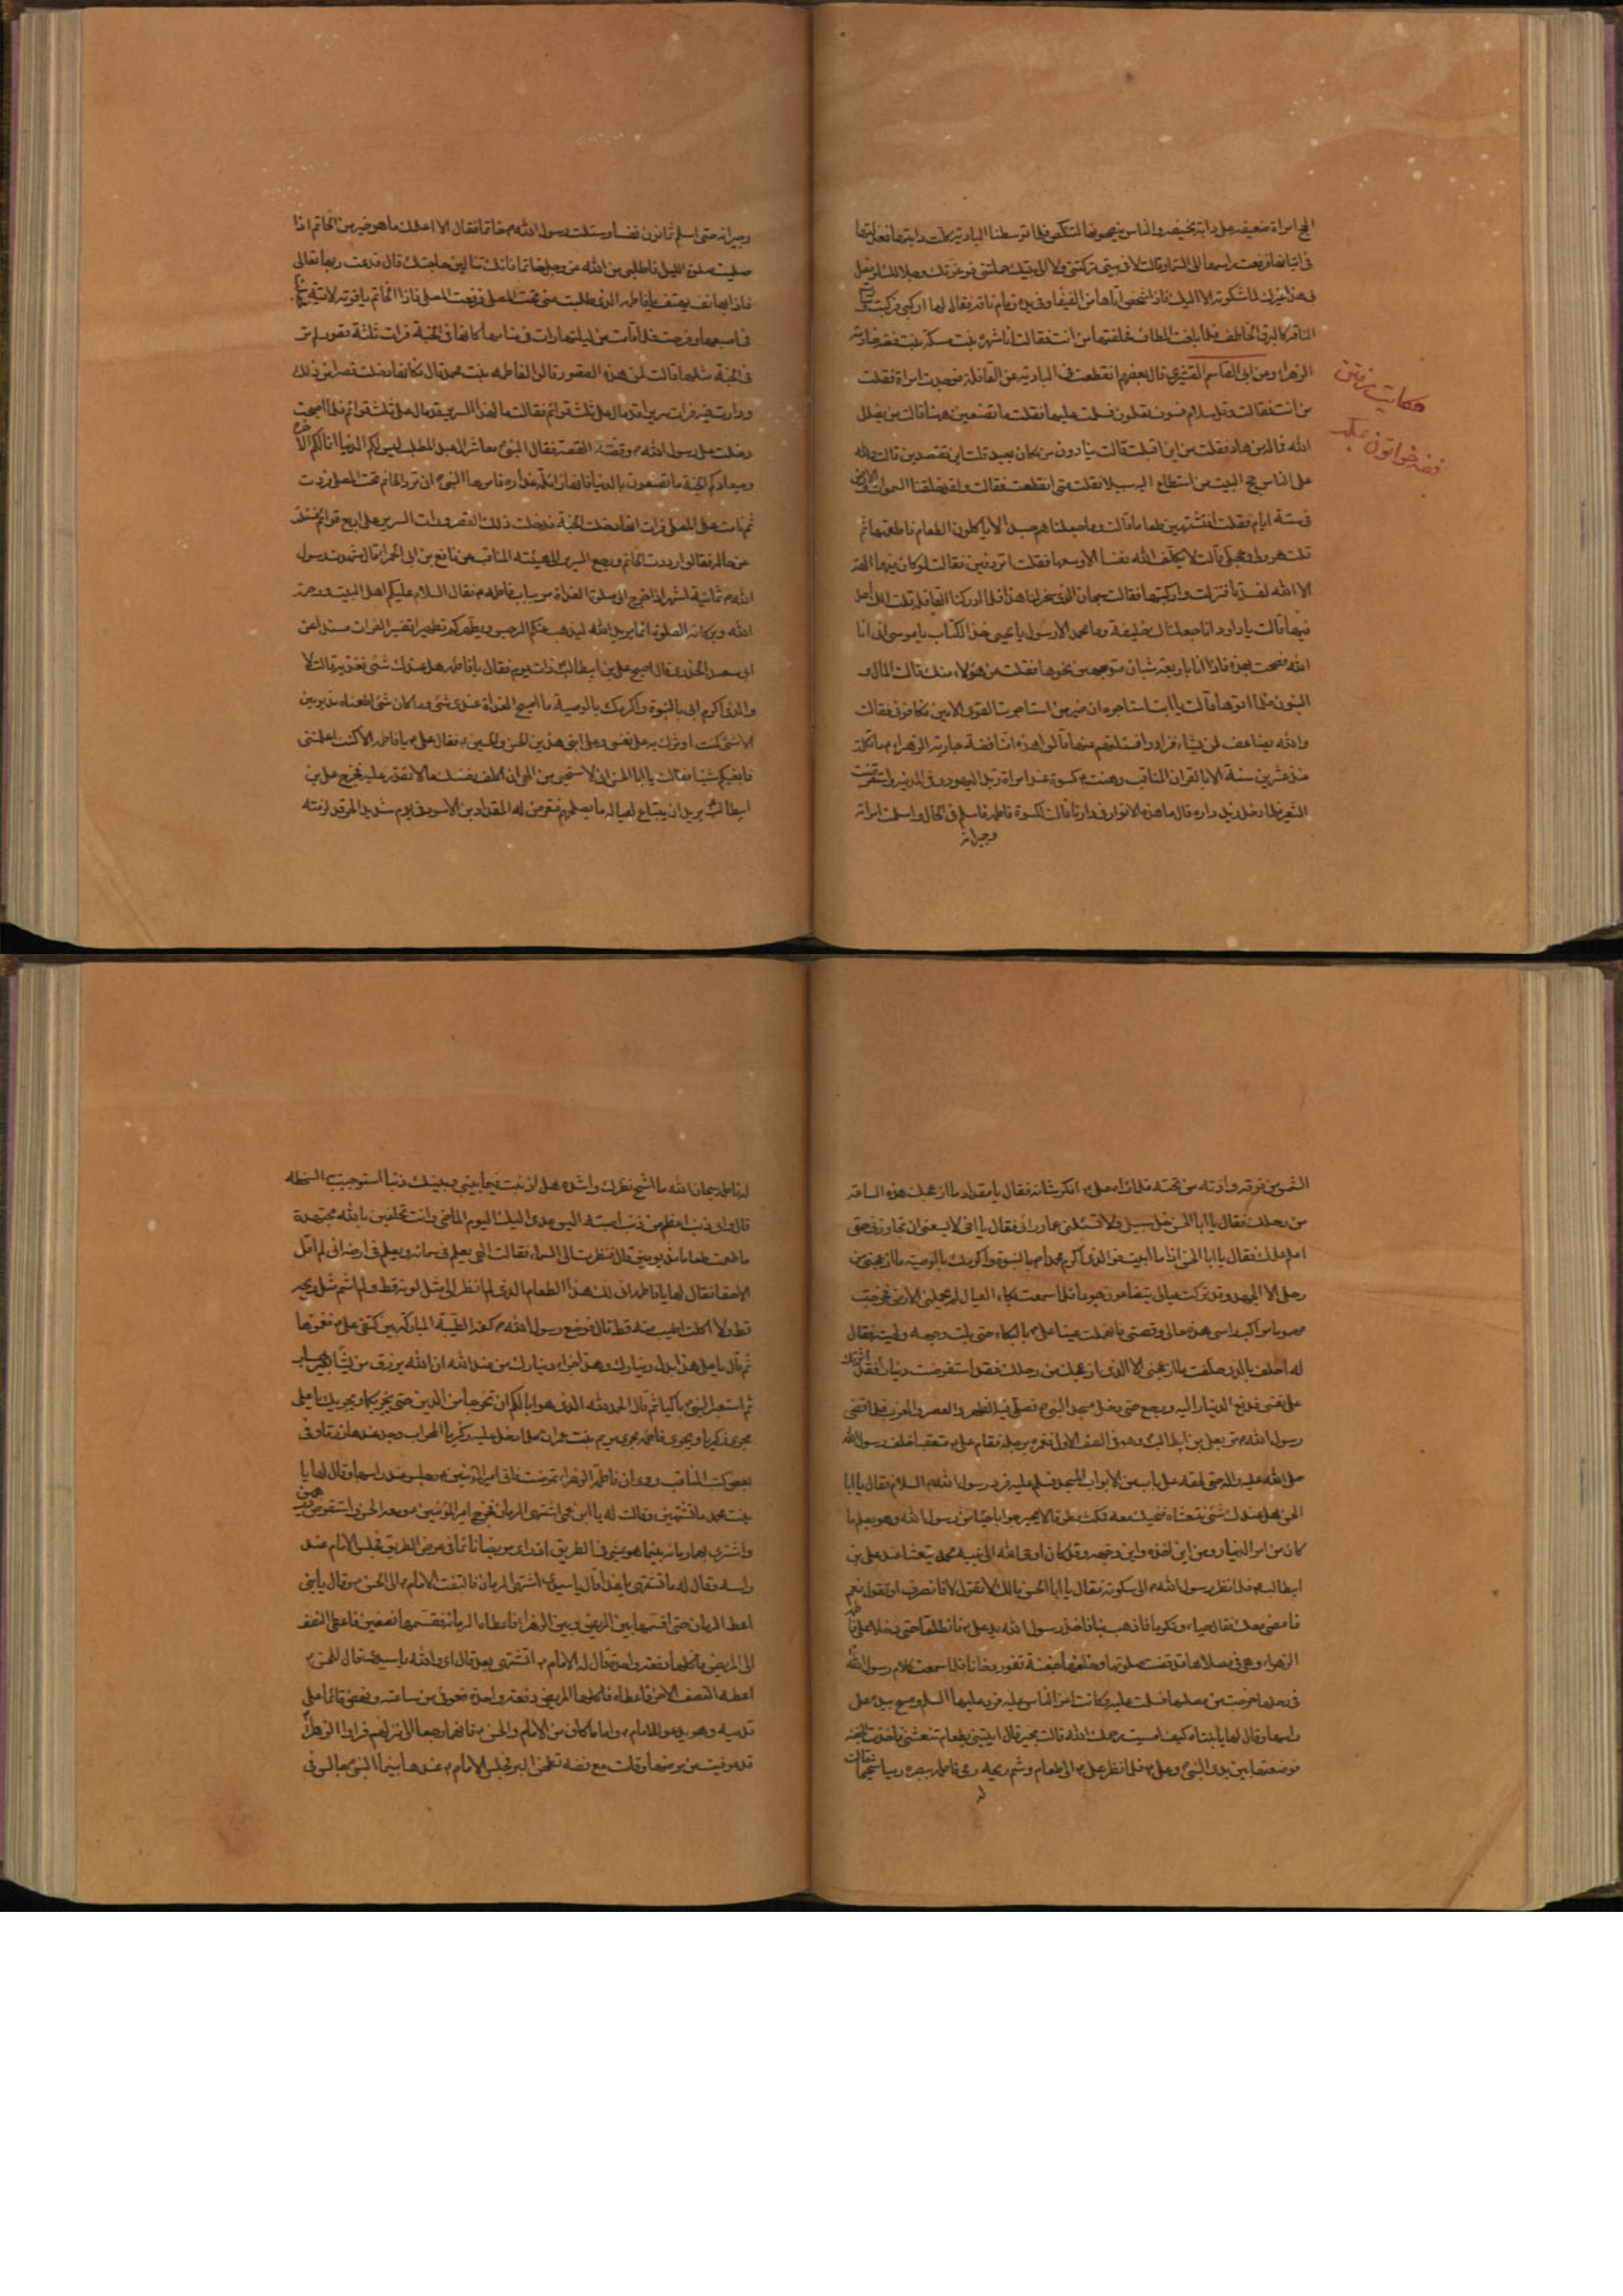 الحج امراة ضعيفة على دابة نحيفة والناس ينصحونها لتنكص فلما توسطنا البادية كلت دابتها فعذلتها
في اتيانها فرفعت راسها الى السماء وقالت لا في بيتي تركتني ولا الى بيتك حملتني فوعزتك وجلالك لو فعل
بي هذا غيرك لما شكوته الا اليك فاذا شخص اتاها من الفيفاء وفي يده زمام ناقة فقال لها اركبي فركبت
الناقة كالبرق الخاطف فلما بلغت المطاف خلفتها من انت فقالت انا شهرة بنت مسكة بنت فضة خادمة
الزهراء وعن ابي القاسم القشيري قال بعضهم انقطعت في البادية عن القافلة فوجدت امراة فقلت
من انت فقالت وقل سلام فسوف تعلمون فسلمت عليها فقلت ما تصنعين ههنا قالت من يضلل
الله فما له من هاد فقلت من اين اقبلت قالت ينادون من مكان بعيد قلت اين تقصدين قالت ولله
على الناس حج البيت من استطاع اليه سبيلا فقلت متى انقطعت فقالت ولقد خلقنا السموات والارض
في ستة ايام فقلت اتشتهين طعاما قالت وما جعلناهم جسدا لا ياكلون الطعام فاطعمتها ثم
قلت هرولي وتعجلي قالت لا يكلف الله نفسا الا وسعها فقلت اردفين فقالت لو كان فيهما الهة
الا الله لفسدتا فنزلت واركبتها فقالت سبحان الذي سخر لنا هذا فلما ادركنا القافلة قلت لك احد
فيها قالت يا داود انا جعلناك خليفة وما محمد الا رسول يا يحيى خذ الكتاب يا موسى اني انا
الله فصحت بهذه فاذا انا باربعة شبان متوجهين نحوها فقلت من هؤلاء منك قالت المال و
البنون فلما اتوها قالت يا ابت استاجره ان خير من استاجرت القوي الامين فكافوني فقالت
والله يضاعف لمن يشاء فزادوا فسئلتهم عنها قالوا هذه امنا فضة جارية الزهراء ما تكلمت
منذ عشرين سنة الا بالقران المناقب رهنت كسوة عند امراة زيد اليهودي في المدينة واستقرضت
الشعير فلما دخل زيد داره قال ما هذه الانوار في دارنا قالت لكسوة فاطمة فاسلم في الحال واسلمت امراته
وجيرانه
حكايت رفتن
فضه خواتون بمكه
وجيرانه حتى اسلم ثمانون نفسا وسئلت رسول الله خاتما فقال الا اعلمك ما هو خير من الخاتم اذا
صليت صلوة الليل فاطلبي من الله عز وجل خاتما فانك تنالين حاجتك قال فدعت ربها تعالى
فاذا بهاتف يهتف يا فاطمة الذي طلبت مني تحت المصلى فرفعت المصلى فاذا الخاتم ياقوت لا قيمة له فجعلته
في اصبعها وفرحت فلما نامت من ليلتها رات في منامها كانها في الجنة فرات ثلثة قصور لم تر
في الجنة مثلها قالت لمن هذه القصور قالوا لفاطمة بنت محمد قال فكانها دخلت قصرا من ذلك
ودارت فيه فرات سريرا قد مال على ثلث قوائم فقالت ما لهذا السرير قد مال على ثلث قوائم فلما اصبحت
دخلت على رسول الله وقصة القصة فقال النبي معاشر ال عبد المطلب ليس لكم الدنيا انما لكم الاخرة
وميعادكم الجنة ما تصنعون بالدنيا فانها زائلة غدارة فامرها النبي ان ترد الخاتم تحت المصلى فردت
ثم نامت على المصلى فرات انها دخلت الجنة فدخلت ذلك القصر ورات السرير على اربع قوائم فسئلت
عن حاله فقالوا ردت الخاتم ورجع السرير الى هيئته المناقب عن نافع بن ابي الحمراء قال شهدت رسول
الله ثمانية اشهر اذا خرج الى صلوة الغداة مر بباب فاطمة فقال السلام عليكم اهل البيت ورحمة
الله وبركاته الصلوة انما يريد الله ليذهب عنكم الرجس ويطهركم تطهيرا تفسير الفرات مسندا عن
ابي سعيد الخدري قال اصبح علي بن ابيطالب ذات يوم فقال يا فاطمة هل عندك شئ تغذينيه قالت لا
والذي اكرم ابي بالنبوة واكرمك بالوصية ما اصبح الغداة عندي شئ وما كان شئ اطعمناه مذ يومين
الا شئ كنت اوثرك به على نفسي وعلى ابني هذين الحسن والحسين فقال علي يا فاطمة الا كنت اعلمتني
فابغيكم شيئا فقالت يا ابا الحسن اني لاستحيي من الهي ان اكلف نفسك ما لا تقدر عليه فخرج علي بن
ابيطالب يريد ان يبتاع لعياله ما يصلحهم فتعرض له المقداد بن الاسود في يوم شديد الحر قد لوحته
الشمس من فوقه واذته من تحته فلما راه علي انكر شانه فقال يا مقداد ما ازعجك هذه الساعة
من رحلك فقال يا ابا الحسن خل سبيلي ولا تسئلني عما ورائي فقال يا اخي لا يسعني ان تجاوزني حتى
اعلم علمك فقال يا ابا الحسن اذا ما ابيت فوالذي اكرم محمدا بالنبوة واكرمك بالوصية ما ازعجني من
رحلي الا الجهد وقد تركت عيالي يتضاغون جوعا فلما سمعت بكاء العيال لم تحملني الارض فخرجت
مهموما راكب راسي هذه حالي وقصتي فانهملت عينا علي بالبكاء حتى بلت دموعه لحيته فقال
له احلف بالذي حلفت ما ازعجني الا الذي ازعجك من رحلك فقد استقرضت دينارا فقد اثرتك
على نفسي فدفع الدينار اليه ورجع حتى دخل مسجد النبي فصلى فيه الظهر والعصر والمغرب فلما قضى
رسول الله مر بعلي بن ابيطالب وهو في الصف الاول فغمزه برجله فقام علي متعقبا خلف رسول الله
صلى الله عليه واله حتى لحقه على باب من الابواب المسجد فسلم عليه فرد رسول الله السلام فقال يا ابا
الحسن هل عندك شئ نتعشاه فنميل معك فمكث مطرقا لا يحير جوابا حياء من رسول الله وهو يعلم ما
كان من امر الدينار ومن اين اخذه واين وجهه وقد كان اوحى الله الى نبيه محمد يتعشا عند علي بن
ابيطالب فلما نظر رسول الله الى سكوته فقال يا ابا الحسن مالك لا تقول لا فانصرف او تقول نعم
فامضي معك فقال حياء وتكرما فاذهب بنا فاخذ رسول الله يد علي فانطلقا حتى دخلا على فاطمة
الزهراء وهي في مصلاها قد قضت صلوتها وخلفها جفنة تفور دخانا فلما سمعت كلام رسول الله
في رحلها خرجت من مصلها فسلمت عليه وكانت اعز الناس عليه فرد عليها السلام ومسح بيده على
راسها وقال لها يا بنتاه كيف امسيت رحمك الله قالت بخير قال ايتيني بطعام نتعشى فاخذت الجفنة
فوضعتها بين يدي النبي وعلي فلما نظر علي الى الطعام وشم ريحه رمى فاطمة ببصره رميا شحيحا قالت
له
له فاطمة سبحان الله ما اشح نظرك واشده هل اذنبت فيما بيني وبينك ذنبا استوجبت السخطة
قال واي ذنب اعظم من ذنب اصبته اليس عهدي اليك اليوم الماضي وانت تحلفين بالله مجتهدة
ما طعمت طعاما مذ يومين قال فنظرت الى السماء فقالت الهي يعلم في سمائه ويعلم في ارضه اني لم اقل
الا حقا فقال لها يا فاطمة انى لك هذا الطعام الذي لم انظر الى مثل لونه قط ولم اشم مثل ريحه
قط ولا اكلت اطيب منه قط قال فوضع رسول الله كفه الطيبة المباركة بين كتفي علي فغمزها
ثم قال يا علي هذا بدل دينارك وهذا جزاء دينارك من عند الله ان الله يرزق من يشاء بغير حساب
ثم استعبر النبي باكيا ثم قال الحمد لله الذي هو ابا لكم ان تخرجا من الدنيا حتى يجزيكما ويجريك يا علي
مجرى زكريا ويجري فاطمة مجرى مريم بنت عمران كلما دخل عليها زكريا المحراب وجد عندها رزقا وفي
بعض كتب المناقب روي ان فاطمة الزهراء تمرضت فاتى امير المؤمنين وجلس عند راسها وقال لها يا
بنت محمد ما تشتهين وقالت له يا ابن عمي اشتهي الرمان فخرج امير المؤمنين ومعه الحسن واستقرض درهمين
واشترى بها رمانة بينما هو يمشي في الطريق اذ راى مريضا نائما في عرض الطريق فجلس الامام عند
راسه وقال له ما تشتهي يا هذا قال يا سيدي اشتهي الرمان فالتفت الامام الى الحسن وقال يا بني
اعط الرمان حتى اقسمها بين المريض وبين الزهراء فاعطاه الرمانة فقسمها نصفين فاعطى النصف
الى المريض فاكلها دفعة واحدة قال له الامام اتشتهي بعد قال اي والله يا سيدي فقال للحسن
اعطه النصف الاخر فاعطاه فاكلها المريض دفعة واحدة فعوفي من ساعته ونهض قائما على
قدميه وهو يدعو للامام واما ما كان من الامام والحسن فانهما رجعا الى منزلهم فراوا الزهراء
قد عوفيت من مرضها وقامت مع فضة تطحن البر فجلس الامام عندها بينما النبي جالس في